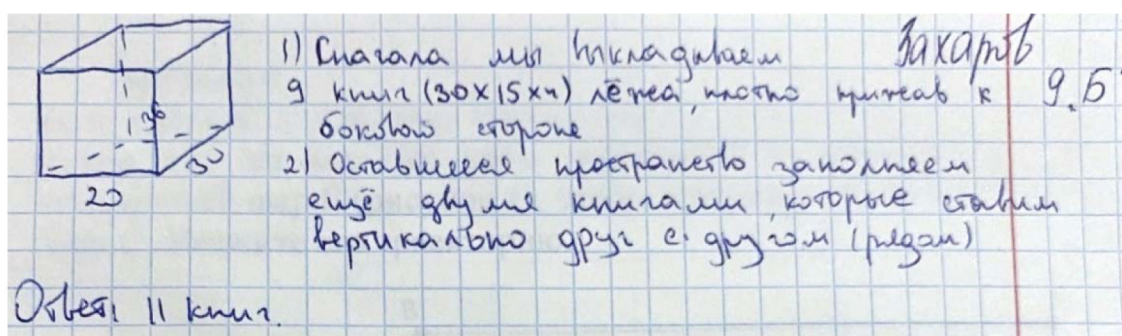 Захаров
9.Б
1) Сначала мы выкладываем
9 книг (30х15х4) лёжа, плотно прижав к
боковой стороне
2) Оставшееся пространство заполняем
ещё двумя книгами, которые ставим
вертикально друг с другом (рядом)
36
30
20
Ответ: 11 книг.